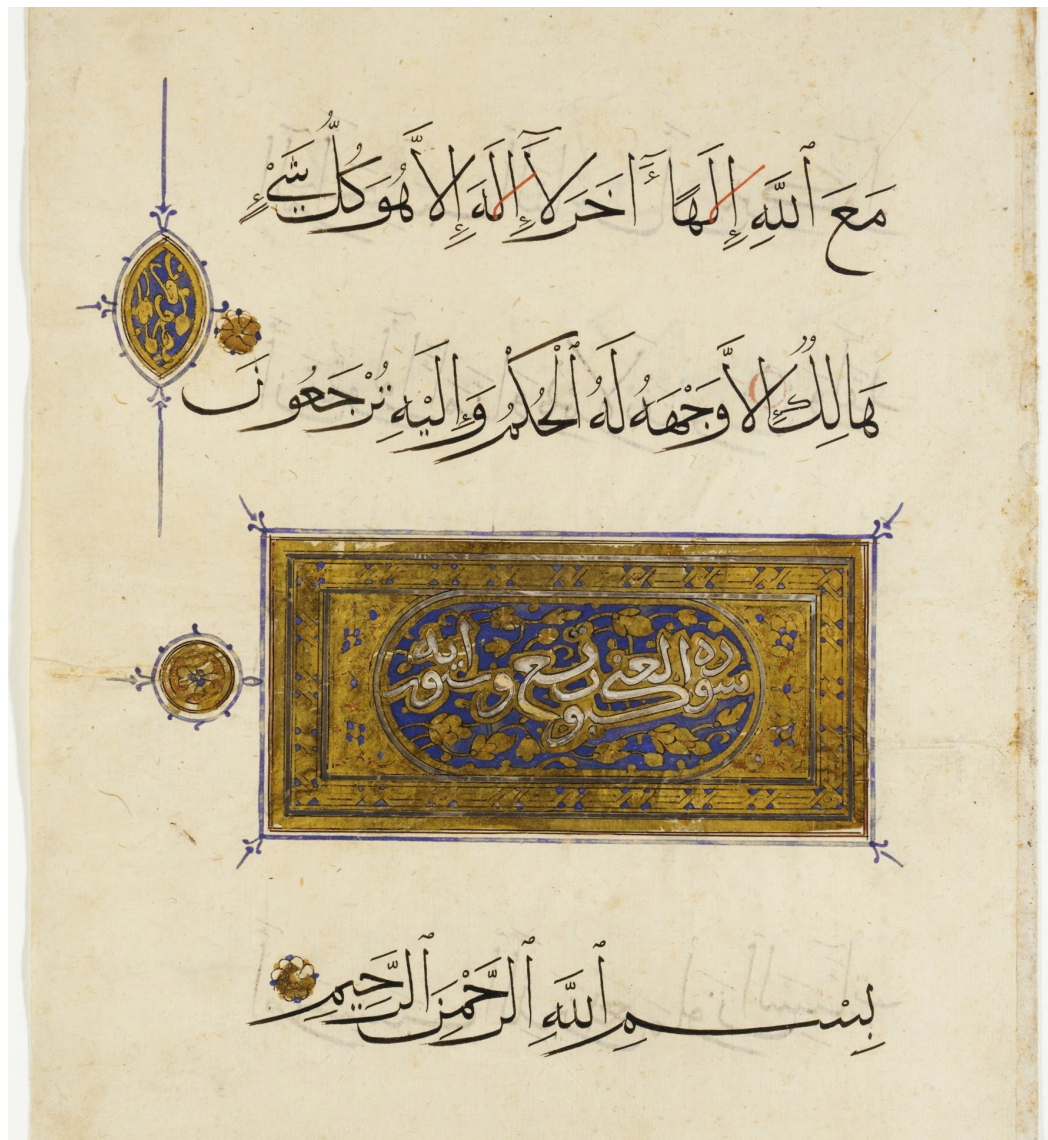 مَعَ ٱللَّهِ إِلَهًا ءَاخَرَ لَآ إِلَهَ إِلَّا هُوَ كُلُّ شَيْءٍ
هَالِكٌ إِلَّا وَجْهَهُ لَهُ ٱلْحُكْمُ وَإِلَيْهِ تُرْجَعُونَ
سوره العنكبوت تسع وستون ايه
بِسْمِ ٱللَّهِ ٱلرَّحْمَنِ ٱلرَّحِيمِ